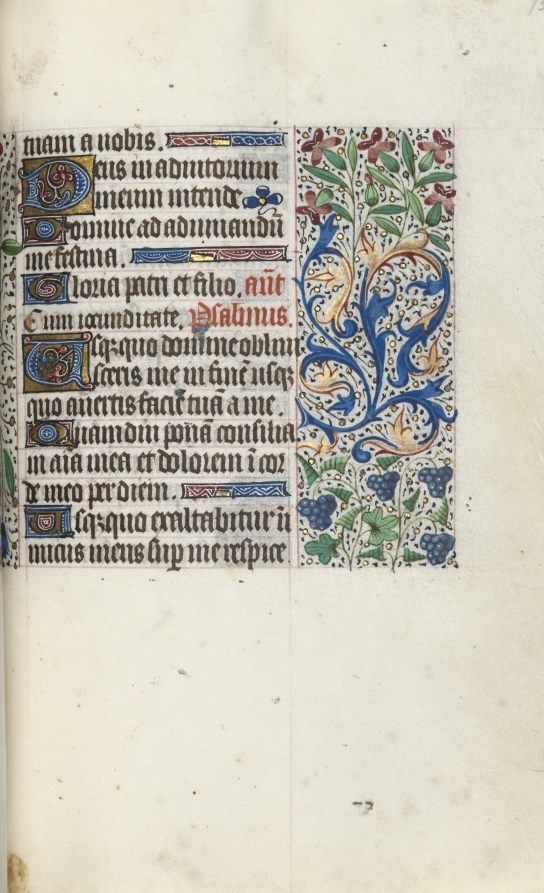 tuam a nobis.
Deus in adiutorium
meum intende
Domine ad adiuuandū
me festina.
Gloria patri et filio. añt
Cum iocunditate. Psalmus.
Vsqꝫquo domine obliui
sceris me in finē usqꝫ
quo auertis faciē tuā a me.
Quamdiu ponā consilia
in aīa mea et dolorem ī cor
de meo per diem.
Vsqꝫquo exaltabitur ī
micus meus sup me respice